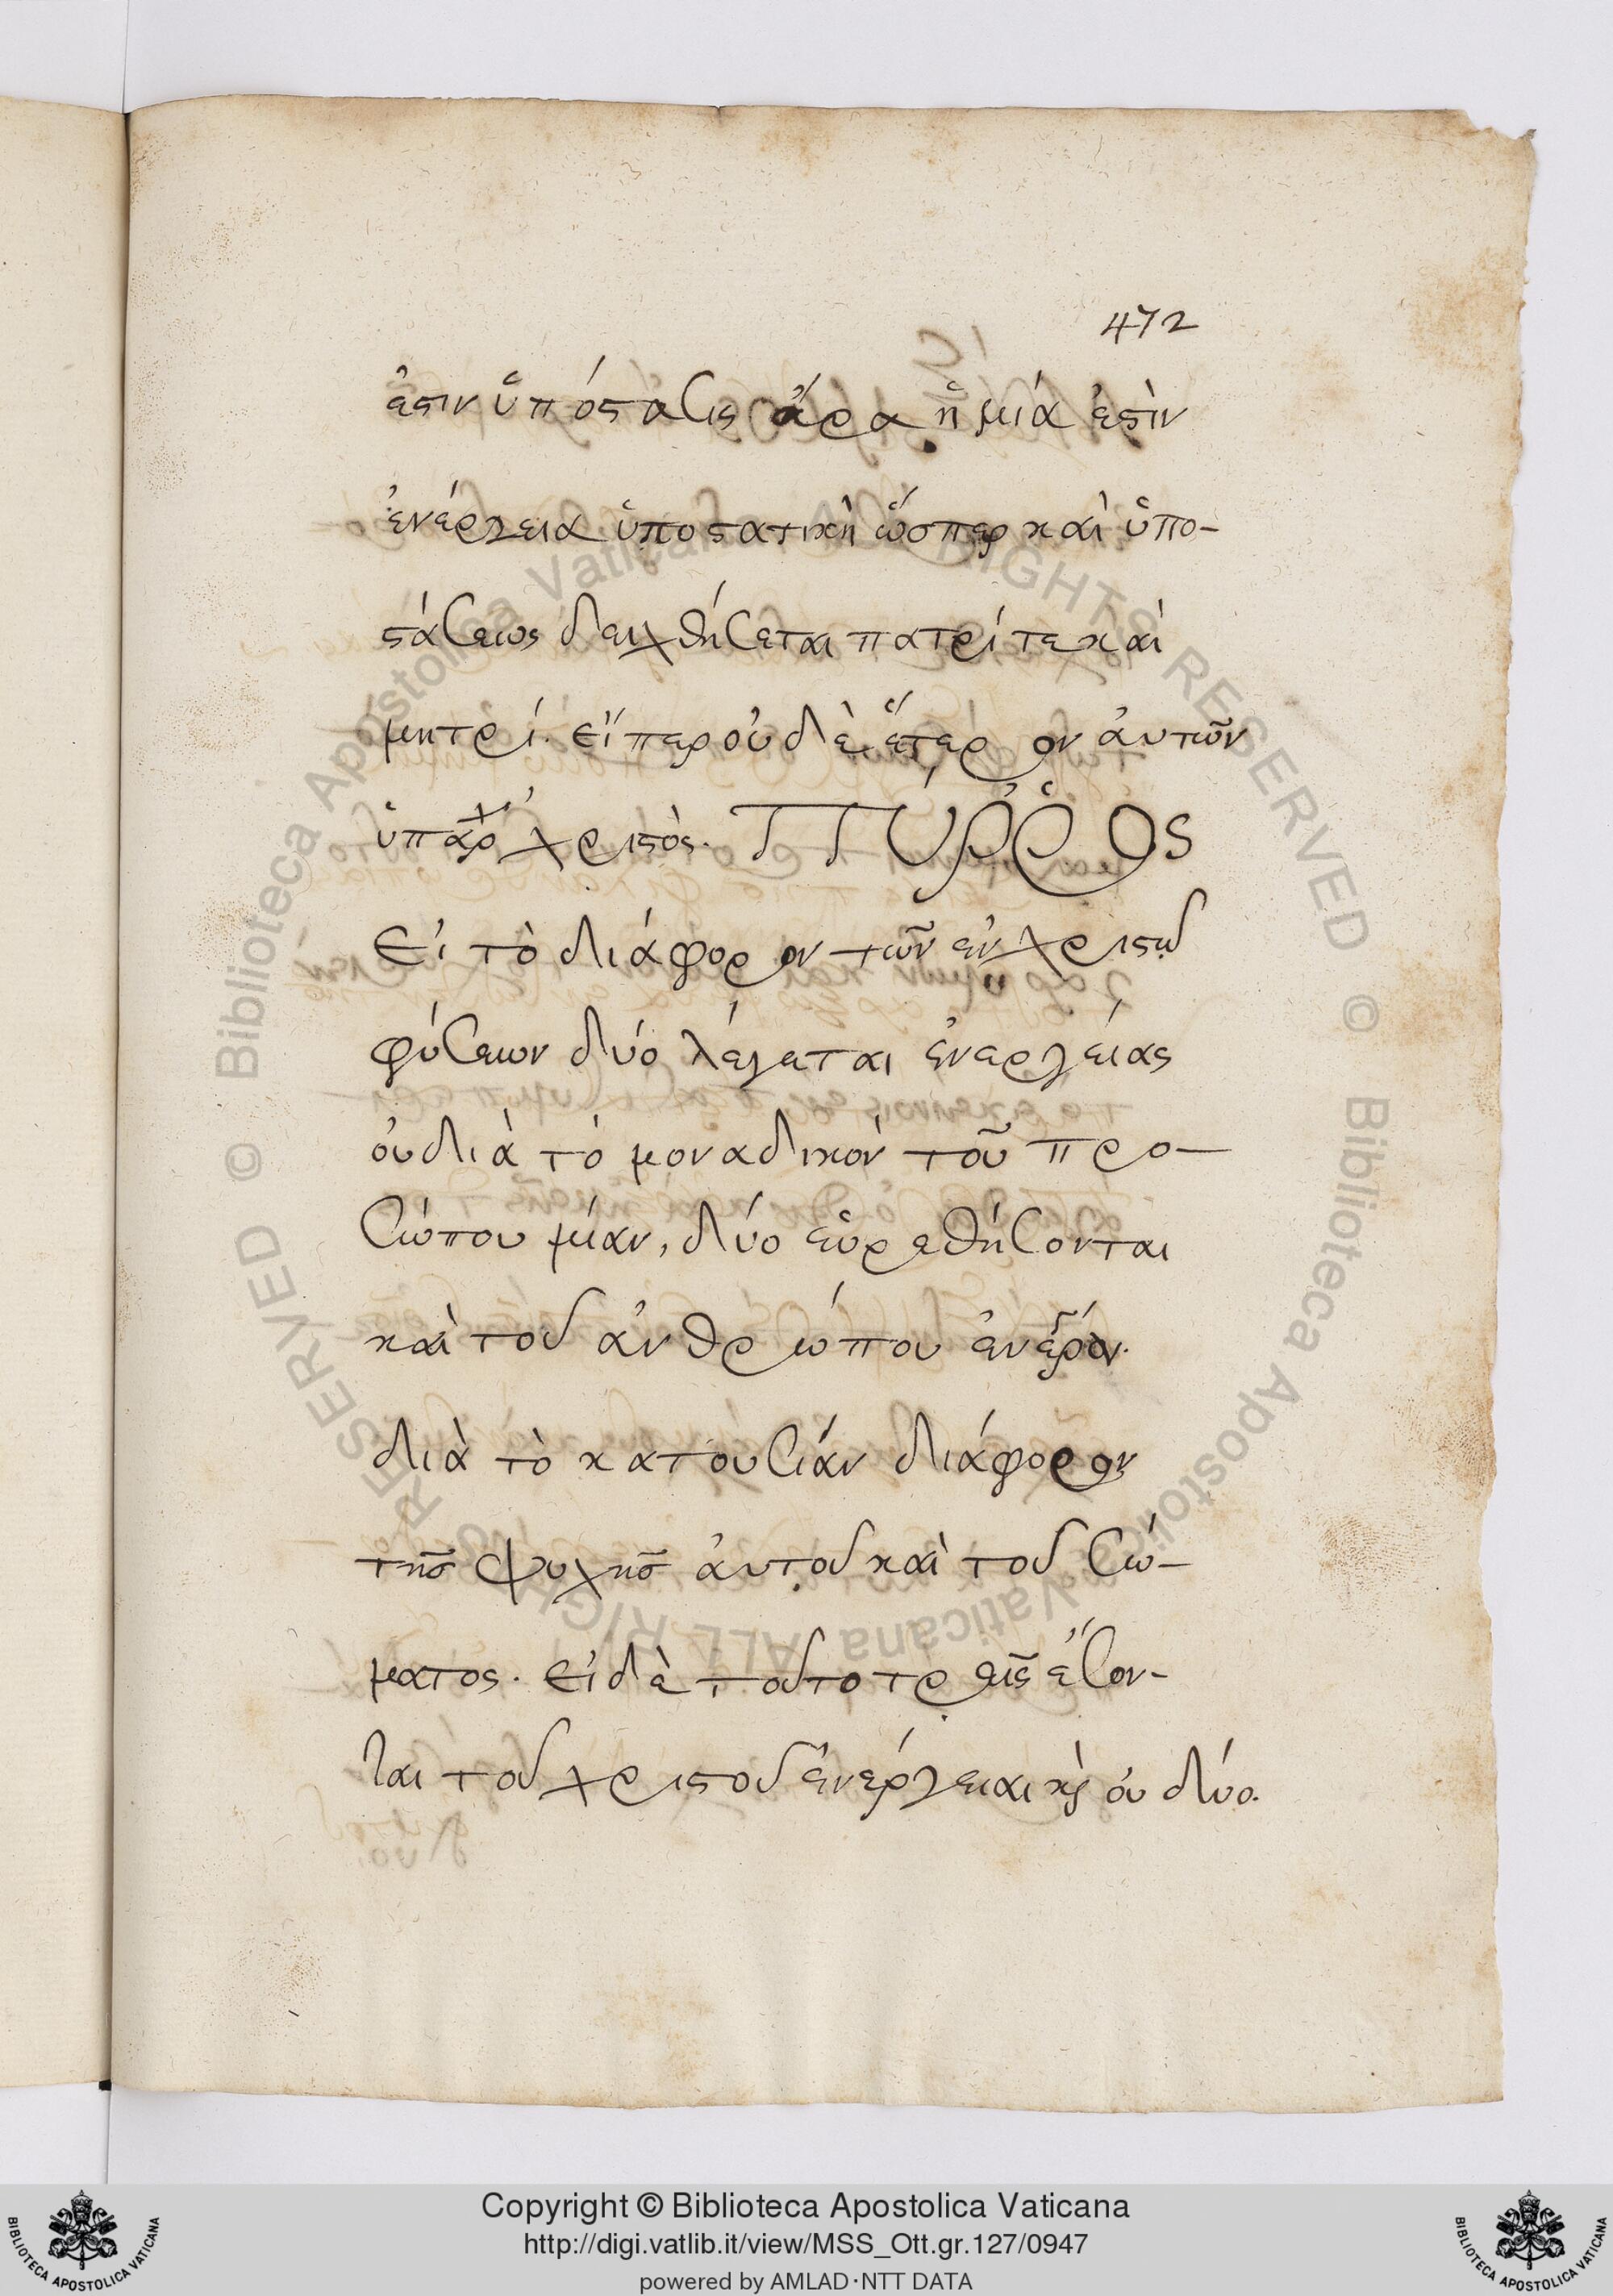 472
ἐστιν ὑπόστασις ἄρα ἡ μία ἐστὶν
ἐνέργεια ὑποστατικὴ ὥσπερ καὶ ὑπο-
στάσεως δειχθήσεται πατρί τε καὶ
μητρί. εἴπερ οὐδὲ ἕτερον ἀυτῶν
ὑπάρχ χριστὸς. ΠΎῤῥος
Εἰ τὸ διάφορον τῶν ἐν χριστῶ
φύσεων δύο λέγεται ἐνεργείας
ὀυ διὰ τὸ μοναδικὸν τοῦ προ-
σώπου μίαν, δύο εὑρεθήσονται
καὶ τοῦ ἀνθρώπου
διὰ τὸ κατουσίαν διάφορον
τῆς ψυχῆς ἀυτοῦ καὶ τοῦ σώ-
ματος. εἰ δὲ τοῦτο τρεῖς ἔσον-
ται τοῦ χριστοῦ ἐνέργειαι κὶ ὀυ δύο.
Copyright © Biblioteca Apostolica Vaticana
http://digi.vatlib.it/view/MSS_Ott.gr.127/0947
powered by AMLAD·NTT DATA
BIBLIOTECA APOSTOLICA VATICANA
BIBLIOTECA APOSTOLICA VATICANA
© Biblioteca Apostolica Vaticana ALL RIGHTS RESERVED © Biblioteca Apostolica Vaticana ALL RIGHTS RESERVED